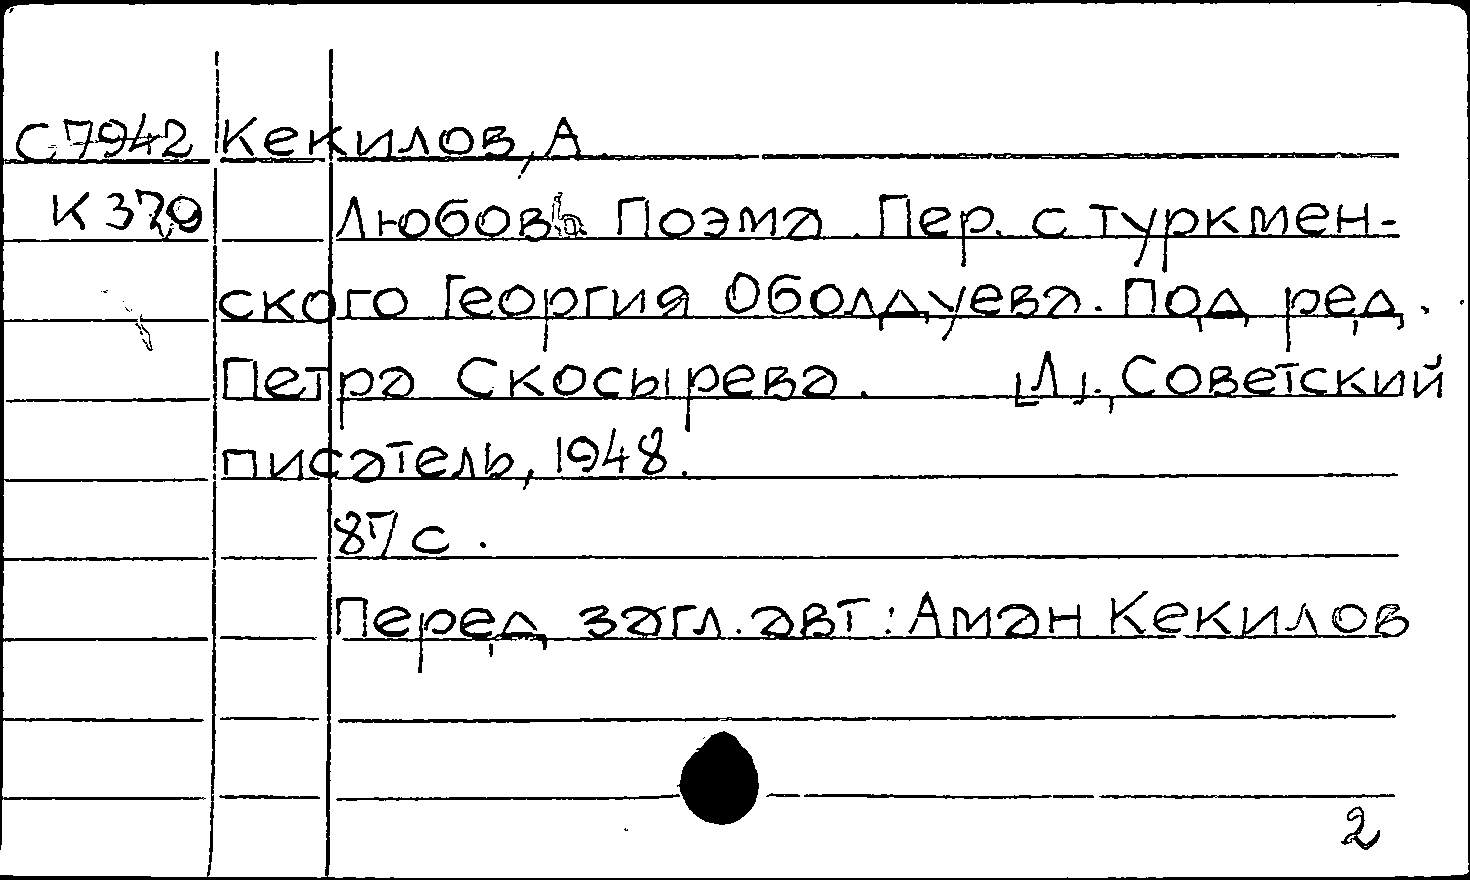 С7942 Кекилов, А
К 379 Любовь Поэма. Пер. с туркмен-
ского Георгия Оболдуева. Под ред.
Петра Скосырева. [Л]., Советский
писатель, 1948.
87 с.
Перед загл. авт: Аман Кекилов
2